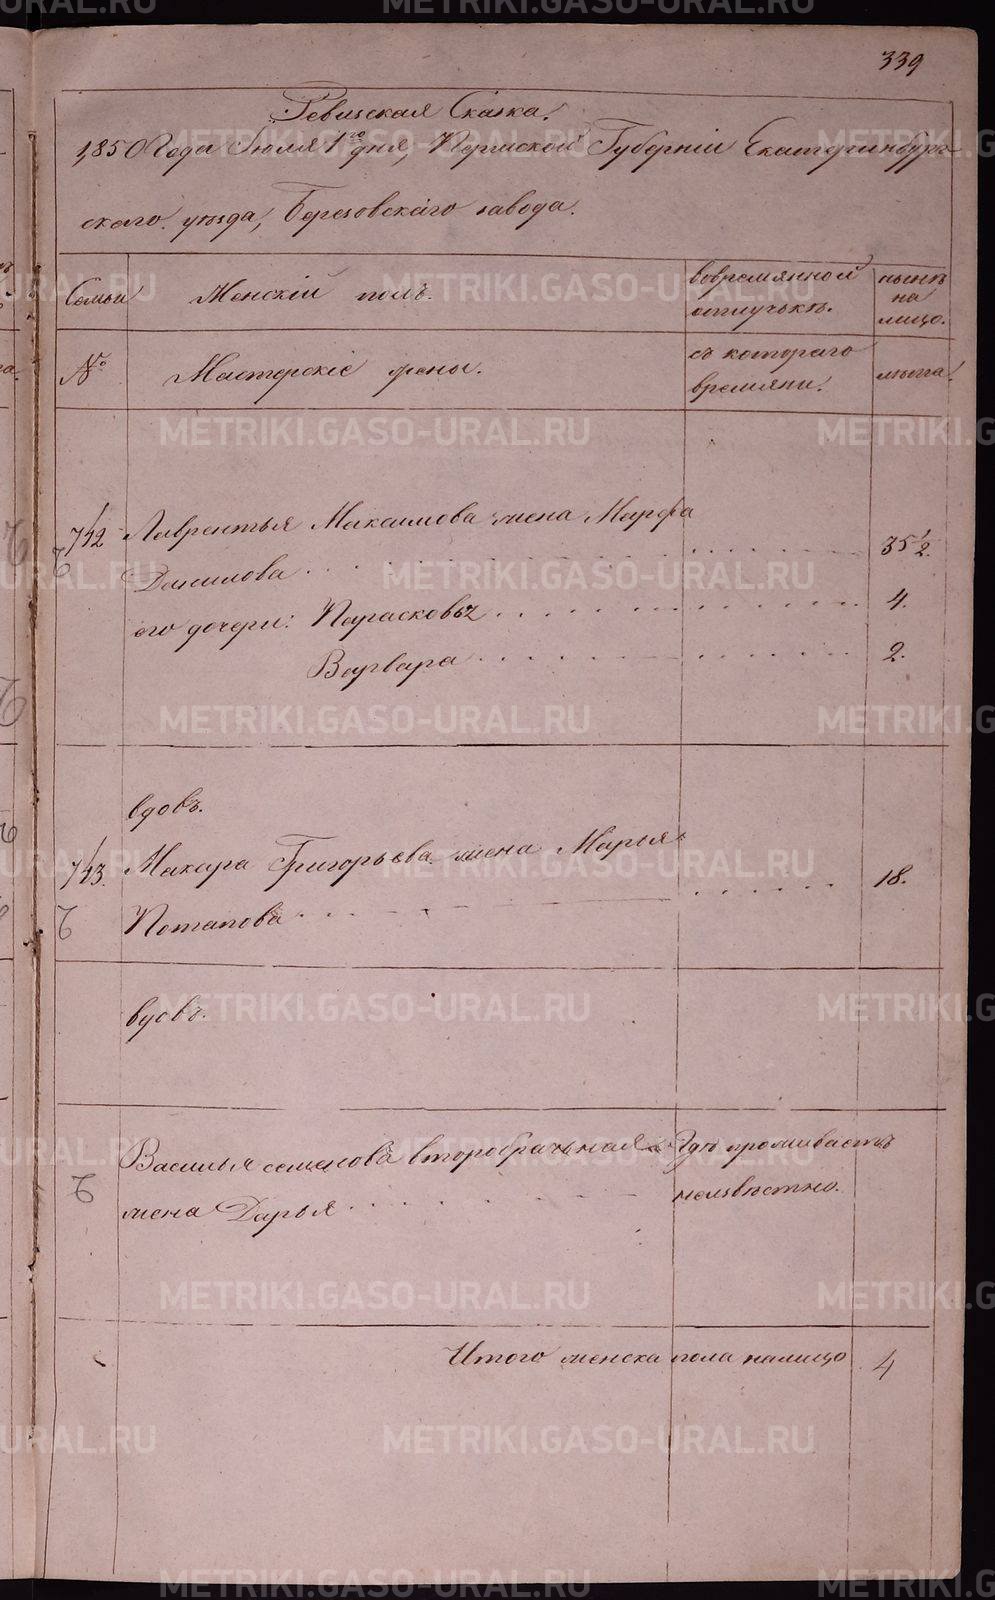 339
Ревизская Сказка.
1850 Года Июля 1го дня, Пермской Губерніи Екатеринбург-
скаго уѣзда, Березовскаго завода.
Семьи Женскій полъ. вовремянной отлучькѣ. нынѣ на лицо.
№ Мастерскіе жены. съ котораго времяни. лѣта.
742 Лаврентья Максимова жена Марфа
Данилова 35 1/2.
его дочери: Парасковья 4.
Варвара 2.
вдовъ.
743. Макара Григорьева жена Марья
Потапова 18.
вдовъ.
Василья семенова второбрачьная Гдѣ проживаетъ
жена Дарья неизвѣстно.
Итого женска пола налицо 4
METRIKI.GASO-URAL.RU